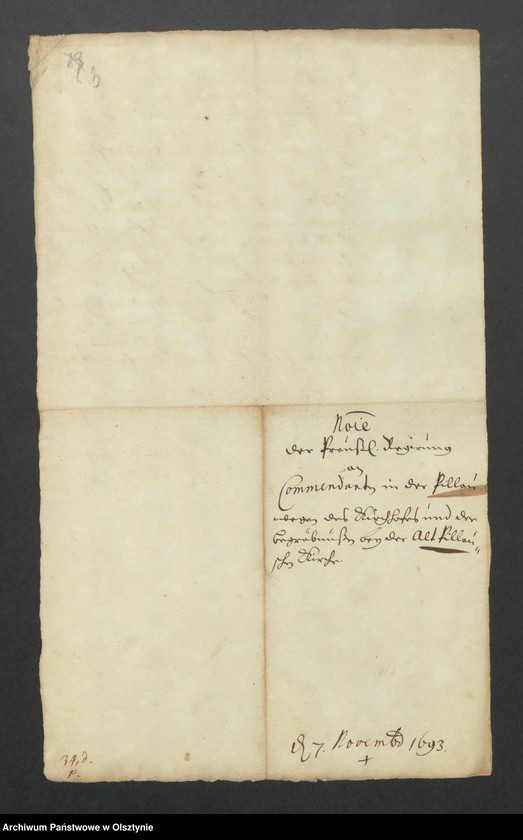 Noīe
der Preußl. Regirung
an
Commendantn in der Pillau
wegen des Kirchhofes und der
begräbnüßen bey der Alt Pillau„
schen Kirche.
d 7. Novembr 1693.
+
34, d.
p.
Archiwum Państwowe w Olsztynie